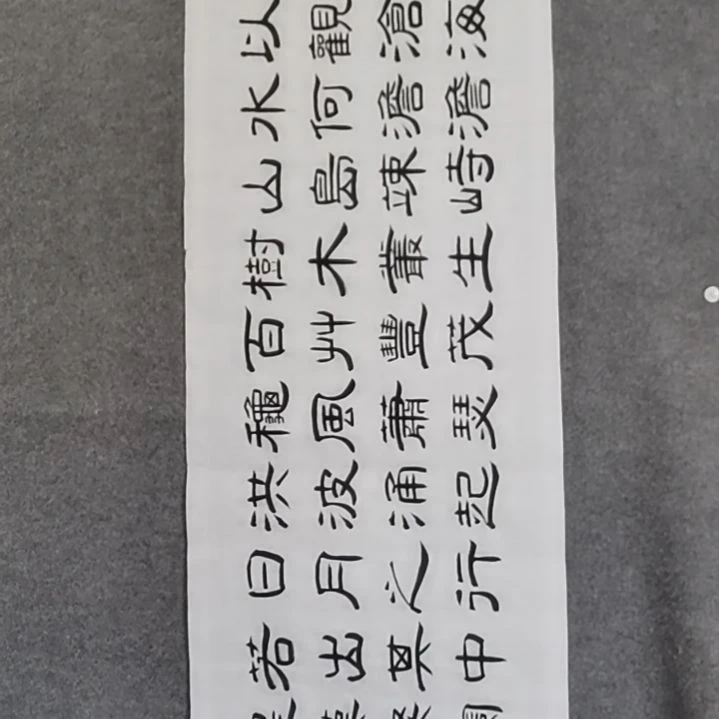 以觀滄海
水何澹澹
山島竦峙
樹木叢生
百艸豐茂
穐風蕭瑟
洪波涌起
日月之行
若出其中